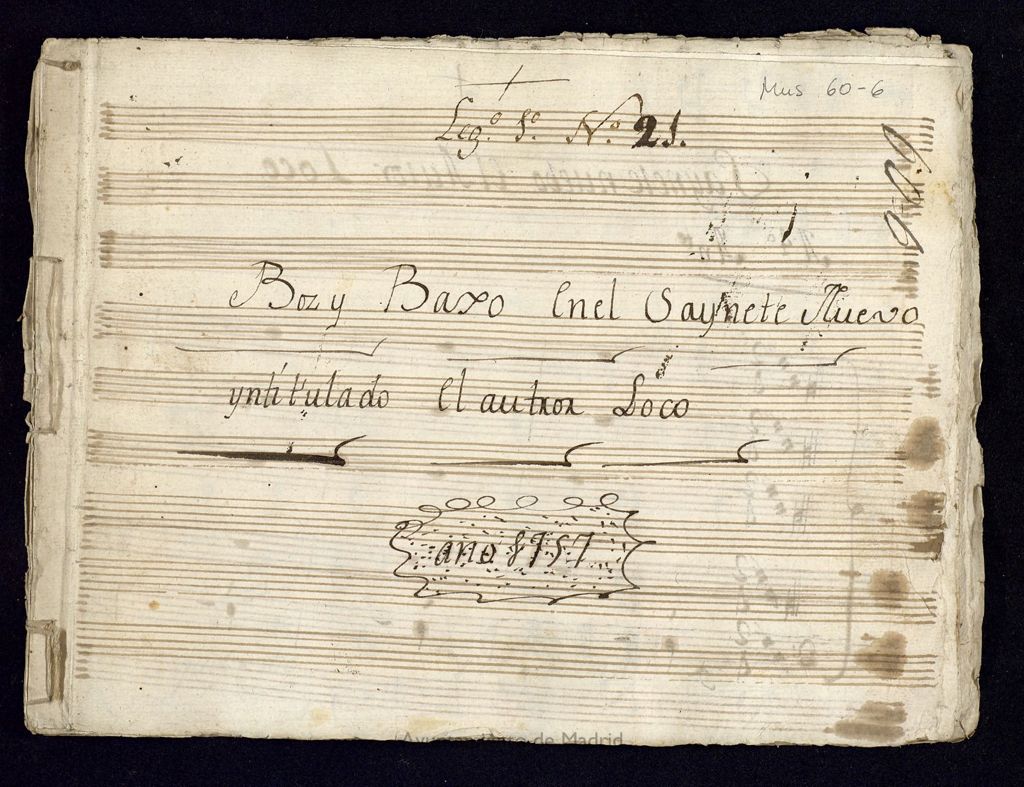 Mus 60-6
Leg.º 1.º N.º 21.
Boz y Baxo Enel Saynete Nuevo
yntitulado El autror Loco
ano 1757
Ayuntamiento de Madrid